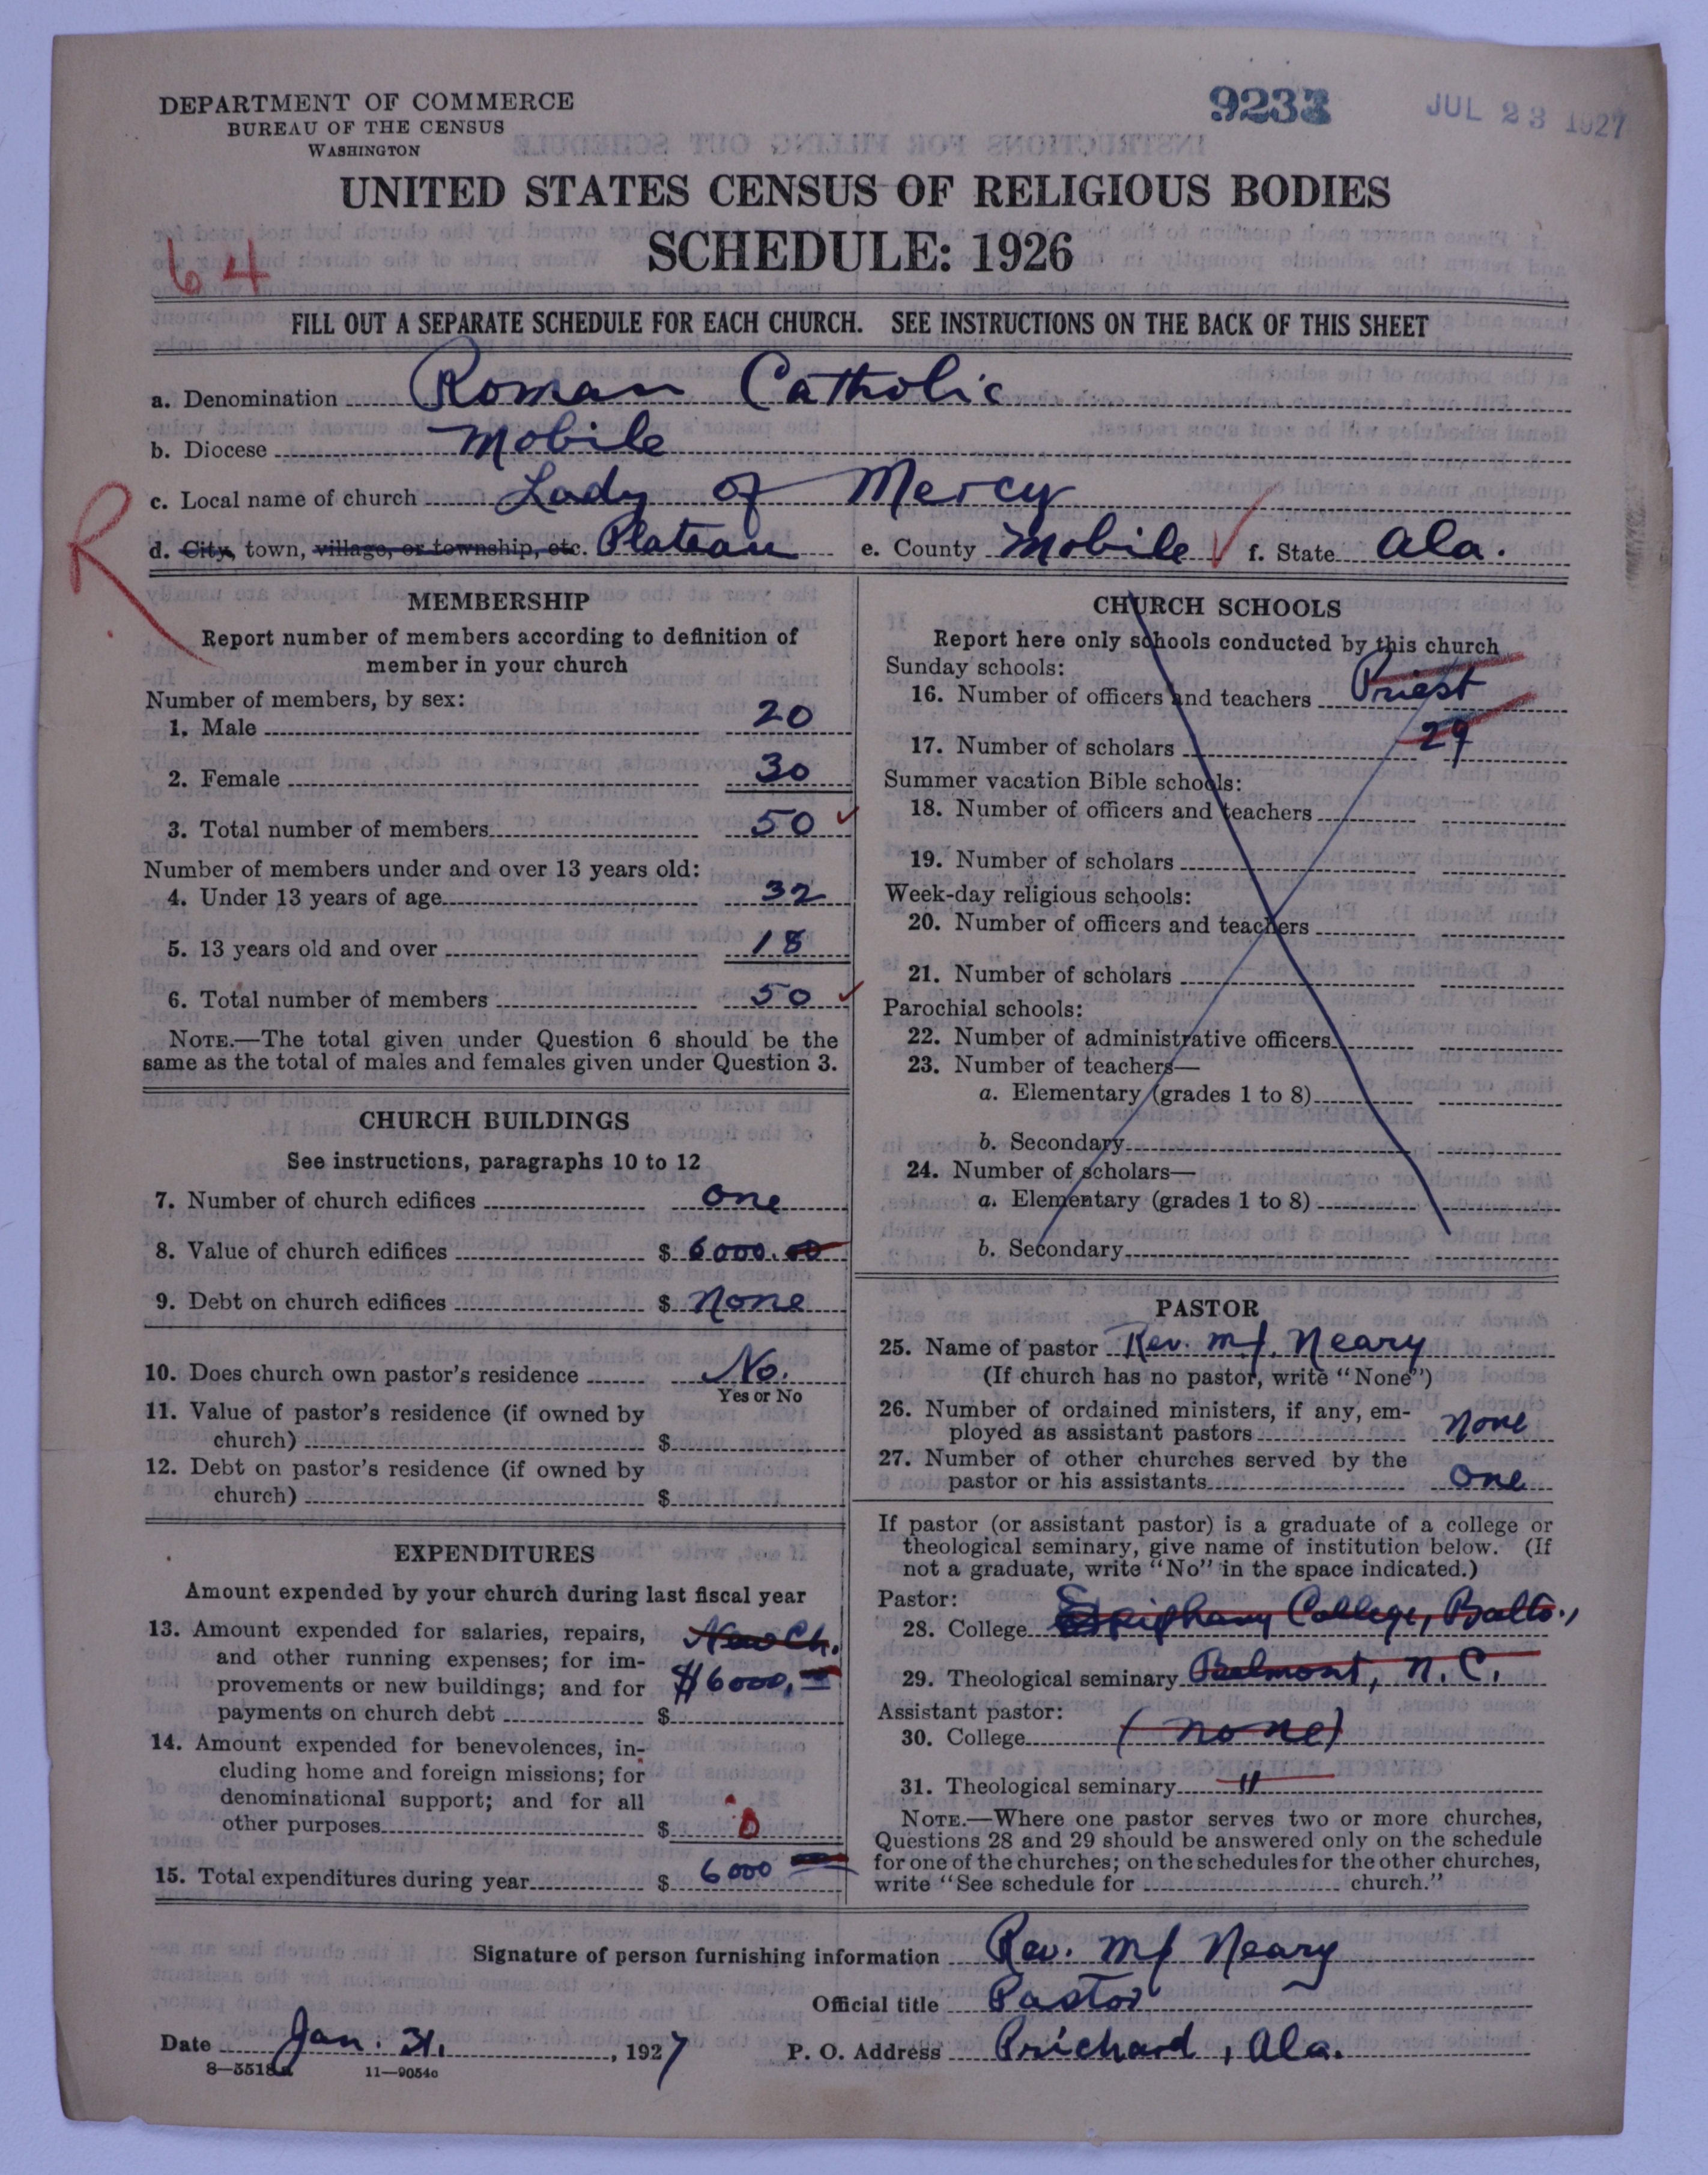 DEPARTMENT OF COMMERCE
BUREAU OF THE CENSUS
WASHINGTON
9233
JUL 23 1927
UNITED STATES CENSUS OF RELIGIOUS BODIES
SCHEDULE: 1926
64
FILL OUT A SEPARATE SCHEDULE FOR EACH CHURCH. SEE INSTRUCTIONS ON THE BACK OF THIS SHEET
a. Denomination Roman Catholic
b. Diocese Mobile
c. Local name of church Lady of Mercy
R
d. City, town, village, or township, etc. Plateau e. County Mobile f. State Ala.
MEMBERSHIP
Report number of members according to definition of
member in your church
Number of members, by sex:
1. Male 20
2. Female 30
3. Total number of members 50
Number of members under and over 13 years old:
4. Under 13 years of age 32
5. 13 years old and over 18
6. Total number of members 50
NOTE.—The total given under Question 6 should be the
same as the total of males and females given under Question 3.
CHURCH BUILDINGS
See instructions, paragraphs 10 to 12
7. Number of church edifices one
8. Value of church edifices $ 6000.00
9. Debt on church edifices $ None
10. Does church own pastor's residence No.
Yes or No
11. Value of pastor's residence (if owned by
church) $
12. Debt on pastor's residence (if owned by
church) $
EXPENDITURES
Amount expended by your church during last fiscal year
13. Amount expended for salaries, repairs, New Ch.
and other running expenses; for im-
provements or new buildings; and for $6000.
payments on church debt $
14. Amount expended for benevolences, in-
cluding home and foreign missions; for
denominational support; and for all
other purposes $ 0
15. Total expenditures during year $ 6000
CHURCH SCHOOLS
Report here only schools conducted by this church
Sunday schools:
16. Number of officers and teachers Priest
17. Number of scholars 29
Summer vacation Bible schools:
18. Number of officers and teachers
19. Number of scholars
Week-day religious schools:
20. Number of officers and teachers
21. Number of scholars
Parochial schools:
22. Number of administrative officers
23. Number of teachers—
a. Elementary (grades 1 to 8)
b. Secondary
24. Number of scholars—
a. Elementary (grades 1 to 8)
b. Secondary
PASTOR
25. Name of pastor Rev. M J. Neary
(If church has no pastor, write "None")
26. Number of ordained ministers, if any, em-
ployed as assistant pastors None
27. Number of other churches served by the
pastor or his assistants One
If pastor (or assistant pastor) is a graduate of a college or
theological seminary, give name of institution below. (If
not a graduate, write "No" in the space indicated.)
Pastor:
28. College Epiphany College, Balto.,
29. Theological seminary Belmont, N.C.
Assistant pastor:
30. College (none)
31. Theological seminary "
NOTE.—Where one pastor serves two or more churches,
Questions 28 and 29 should be answered only on the schedule
for one of the churches; on the schedules for the other churches,
write "See schedule for church."
Signature of person furnishing information Rev. M J Neary
Official title Pastor
Date Jan. 31, 1927 P. O. Address Prichard, Ala.
8—5518a 11—9054c